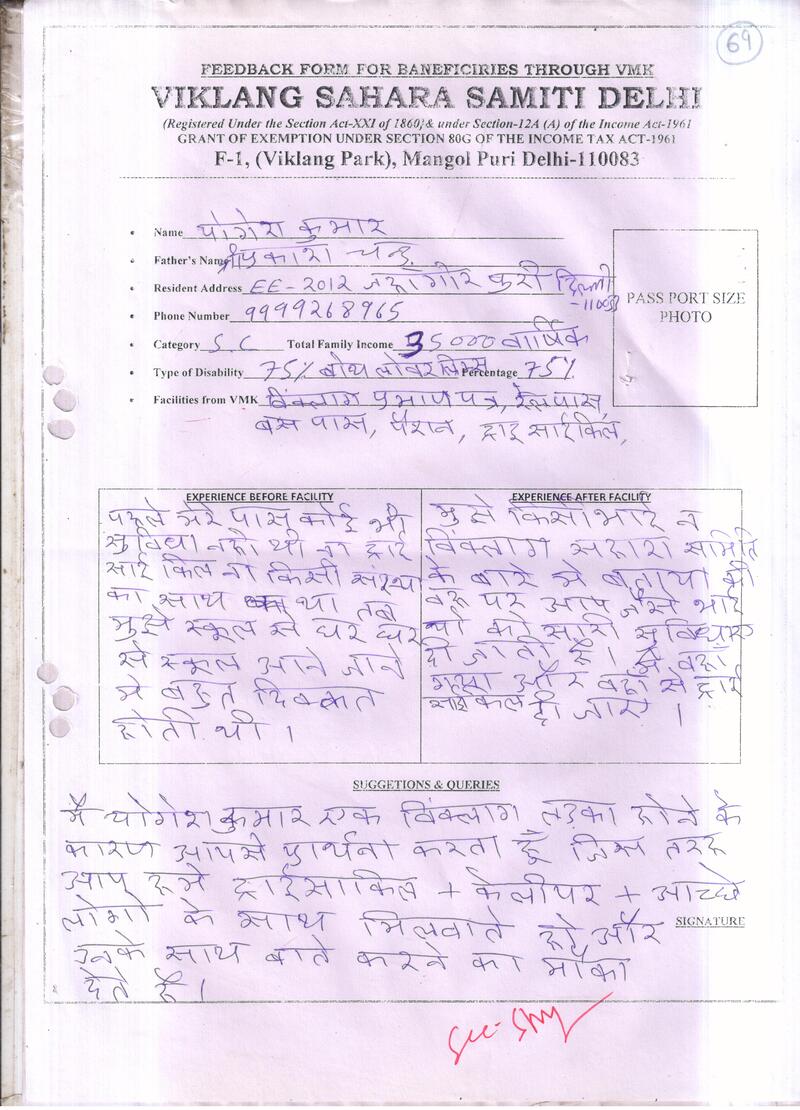 69
FEEDBACK FORM FOR BANEFICIRIES THROUGH VMK
VIKLANG SAHARA SAMITI DELHI
(Registered Under the Section Act-XXI of 1860) & under Section-12A (A) of the Income Act-1961
GRANT OF EXEMPTION UNDER SECTION 80G OF THE INCOME TAX ACT-1961
F-1, (Viklang Park), Mangol Puri Delhi-110083
• Name योगेश कुमार
• Father's Name श्री प्रकाश चन्द
• Resident Address EE-2012 जहाँगीर पुरी दिल्ली
-110033
• Phone Number 9999268965
• Category S.C Total Family Income 35000 वार्षिक
• Type of Disability 75% बोथ लोवर लिम्स Percentage 75%
• Facilities from VMK विंक्लाग प्रमाण पत्र, रेल पास,
बस पास, पेंशन, ट्राइ साईकिल,
PASS PORT SIZE
PHOTO
EXPERIENCE BEFORE FACILITY
पहले मेरे पास कोई भी
सुविधा नही थी ना ट्राई
साईकिल ना किसी संस्था
का साथ था तब
मुझे स्कूल से घर घर
से स्कूल आने जाने
मे बहुत दिक्कत
होती थी ।
EXPERIENCE AFTER FACILITY
मुझे किसी भाई ने
विंक्लाग सहारा समिति
के बारे मे बताया की
वह पर आप जैसे भाई
यो को सारी सुविधाए
दी जाती है । मै वहाँ
गया और वहाँ से ट्राई
साईकल दी जाए ।
SUGGETIONS & QUERIES
मै योगेश कुमार एक विंक्लाग लड़का होने के
कारण आपसे प्रार्थना करता हूँ जिस तरह
आप हमे ट्राईसाकिल + केलीपर + आच्छे
लोगो के साथ मिलवाते हो और
SIGNATURE
उनके साथ बाते करने का मौका
देते है ।